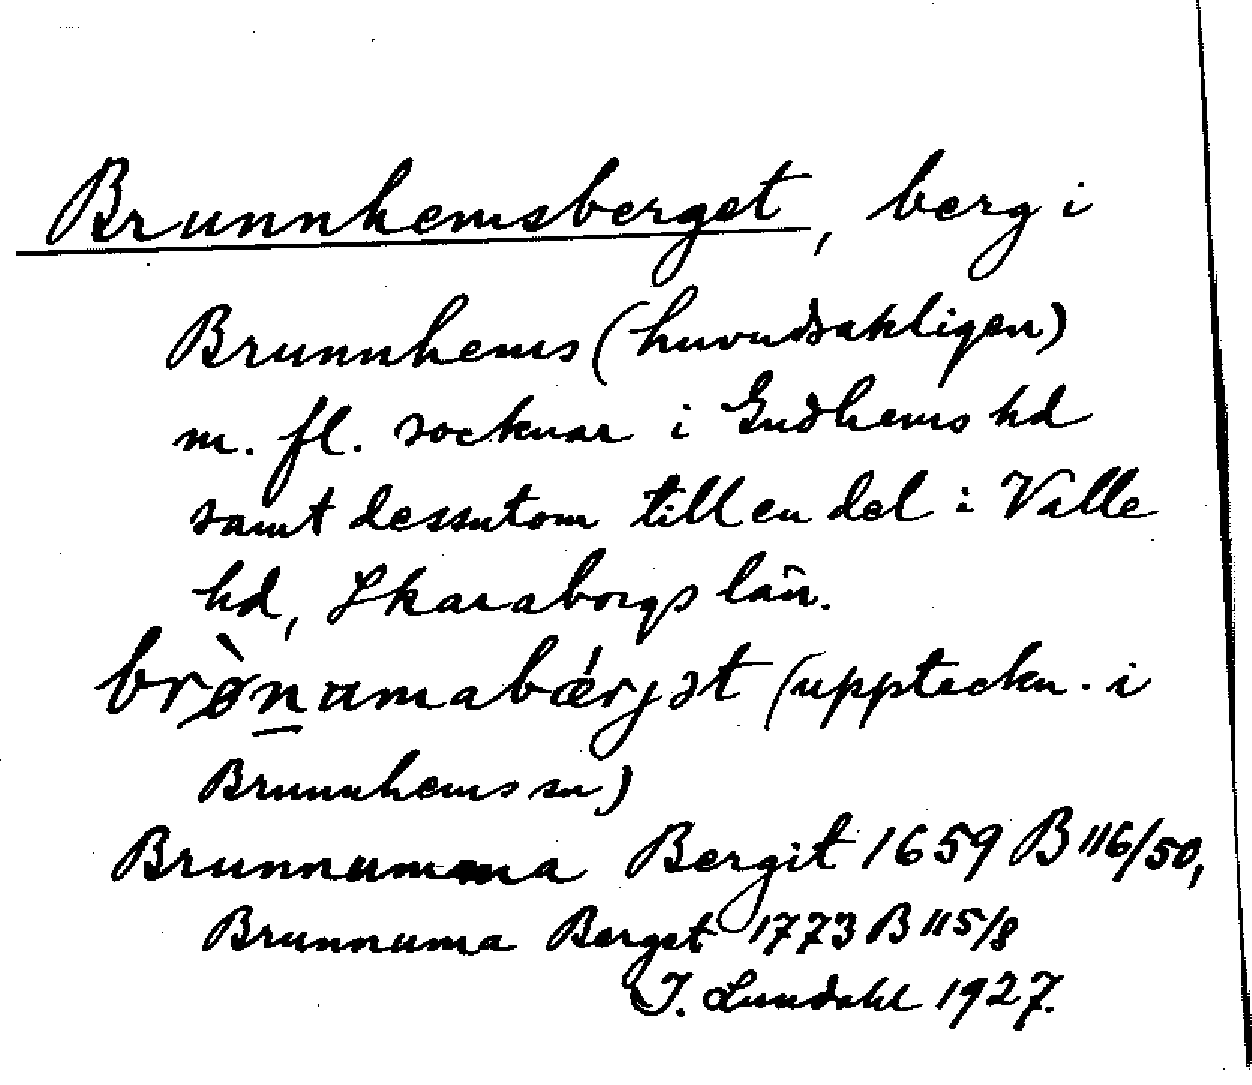 Brunnhemsberget, berg i
Brunnhems (huvudsakligen)
m. fl. socknar i Gudhems hd
samt dessutom till en del i Valle
hd, Skaraborgs län.
brø̀n̲amabǽrjət (uppteckn. i
Brunnhems sn)
Brunnumma Bergit 1659 B 116/50,
Brunnuma Berget 1773 B 115/8
I. Lundahl 1927.